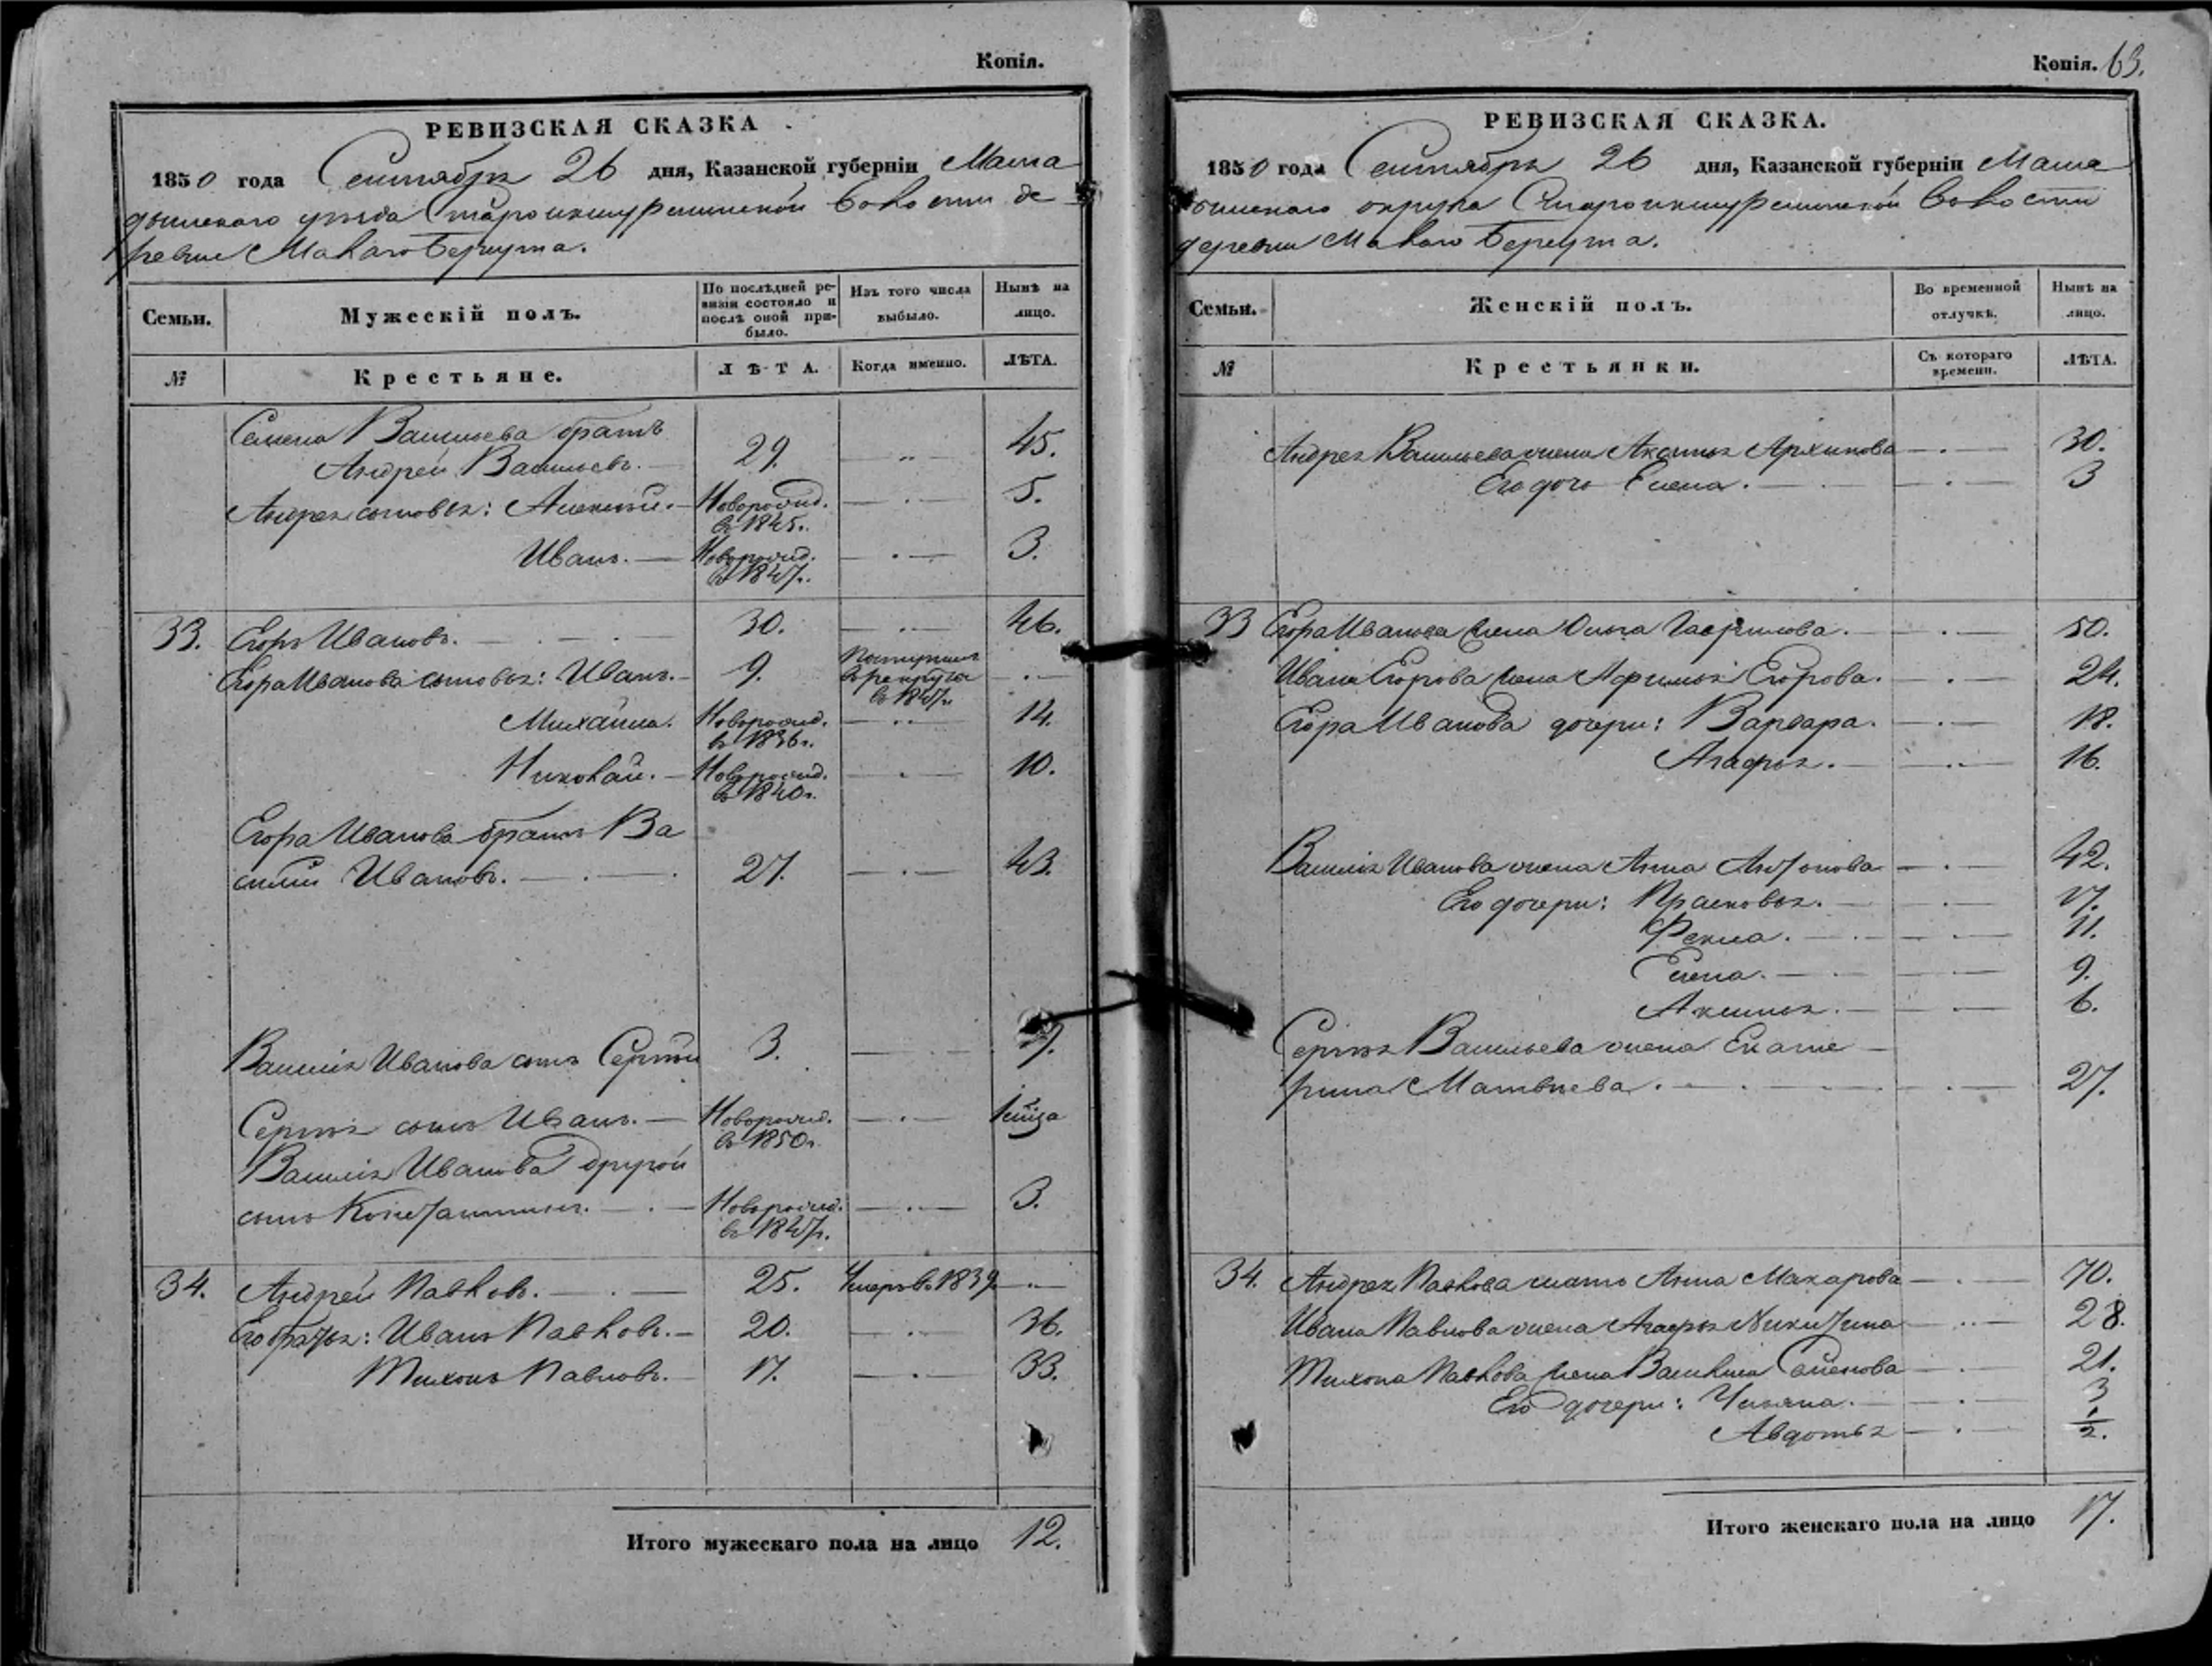 Копія.
РЕВИЗСКАЯ СКАЗКА
1850 года Сентября 26 дня, Казанской губерніи Мама
дышскаго уѣзда Староикшурминской волости де
ревни Малаго Береута.
Семьи. Мужескій полъ. По послѣдней ре- Изъ того числа Нынѣ на
визіи состояло и выбыло. лицо.
послѣ оной при-
было.
№ Крестьяне. ЛѢТА. Когда именно. ЛѢТА.
Семена Васильева братъ
Андрей Васильевъ. 29. 45.
Андрея сыновья: Алексѣй. Новорожд. 5.
въ 1845г.
Иванъ. Новорожд. 3.
въ 1847г.
33. Егоръ Ивановъ. 30. 46.
Егора Иванова сыновья: Иванъ. 9. Поступилъ
в рекруты
въ 1847г.
Михайла. Новорожд. 14.
въ 1836г.
Николай. Новорожд. 10.
въ 1840г.
Егора Иванова братъ Ва
силій Ивановъ. 27. 43.
Василія Иванова сынъ Сергѣй 3.
Сергѣя сынъ Иванъ. Новорожд.
въ 1850г.
Василія Иванова другой
сынъ Константинъ. Новорожд. 3.
въ 1847г.
34. Андрей Павловъ. 25. Умеръ въ 1839
Его братья: Иванъ Павловъ. 20. 36.
Тихонъ Павловъ. 17. 33.
Итого мужескаго пола на лицо 12.
Копія. 63.
РЕВИЗСКАЯ СКАЗКА.
1850 года Сентября 26 дня, Казанской губерніи Мама
дышскаго округа Староикшурминской волости
деревни Малаго Береута.
Семьи. Женскій полъ. Во временной Нынѣ на
отлучкѣ. лицо.
№ Крестьянки. Съ котораго ЛѢТА.
времени.
Андрея Васильева жена Аксинья Архипова 30.
Его дочь Елена. 3
33 Егора Иванова жена Ольга Гаврилова. 50.
Ивана Егорова жена Афимья Егорова. 24.
Егора Иванова дочери: Варвара. 18.
Агафья. 16.
Василія Иванова жена Анна Антонова 42.
Его дочери: Прасковья. 17.
Фекла. 11.
Елена. 9.
Аксинья. 6.
Сергѣя Васильева жена Екате
рина Матвѣева. 27.
34. Андрея Павлова мать Анна Макарова 70.
Ивана Павлова жена Агафья Никитина 28.
Тихона Павлова жена Василиса Семенова 21.
Его дочери: Ульяна. 3
Авдотья 1/2.
Итого женскаго пола на лицо 17.